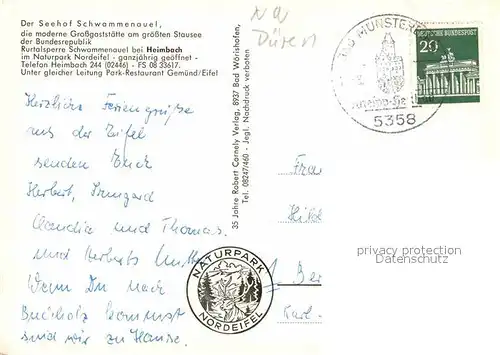 Der Seehof Schwammenauel,
die moderne Großgaststätte am größten Stausee
der Bundesrepublik
Rurtalsperre Schwammenauel bei Heimbach
im Naturpark Nordeifel - ganzjährig geöffnet -
Telefon Heimbach 244 (02446) - FS 08 33617.
Unter gleicher Leitung Park-Restaurant Gemünd/Eifel
Herzliche Feriengrüße
aus der Eifel
senden Euch
Herbert, Irmgard
Claudia und Thomas.
und Herberts Mutter
Wenn Du nach
Buchholz kommst
sind wir zu Hause.
35 Jahre Robert Cornely Verlag, 8937 Bad Wörishofen,
Tel. 08247/460 - Jegl. Nachdruck verboten
NATURPARK
NORDEIFEL
Düren
BAD MÜNSTEREIFEL
5358
DEUTSCHE BUNDESPOST
20
Frau
privacy protection
Datenschutz
Karl-